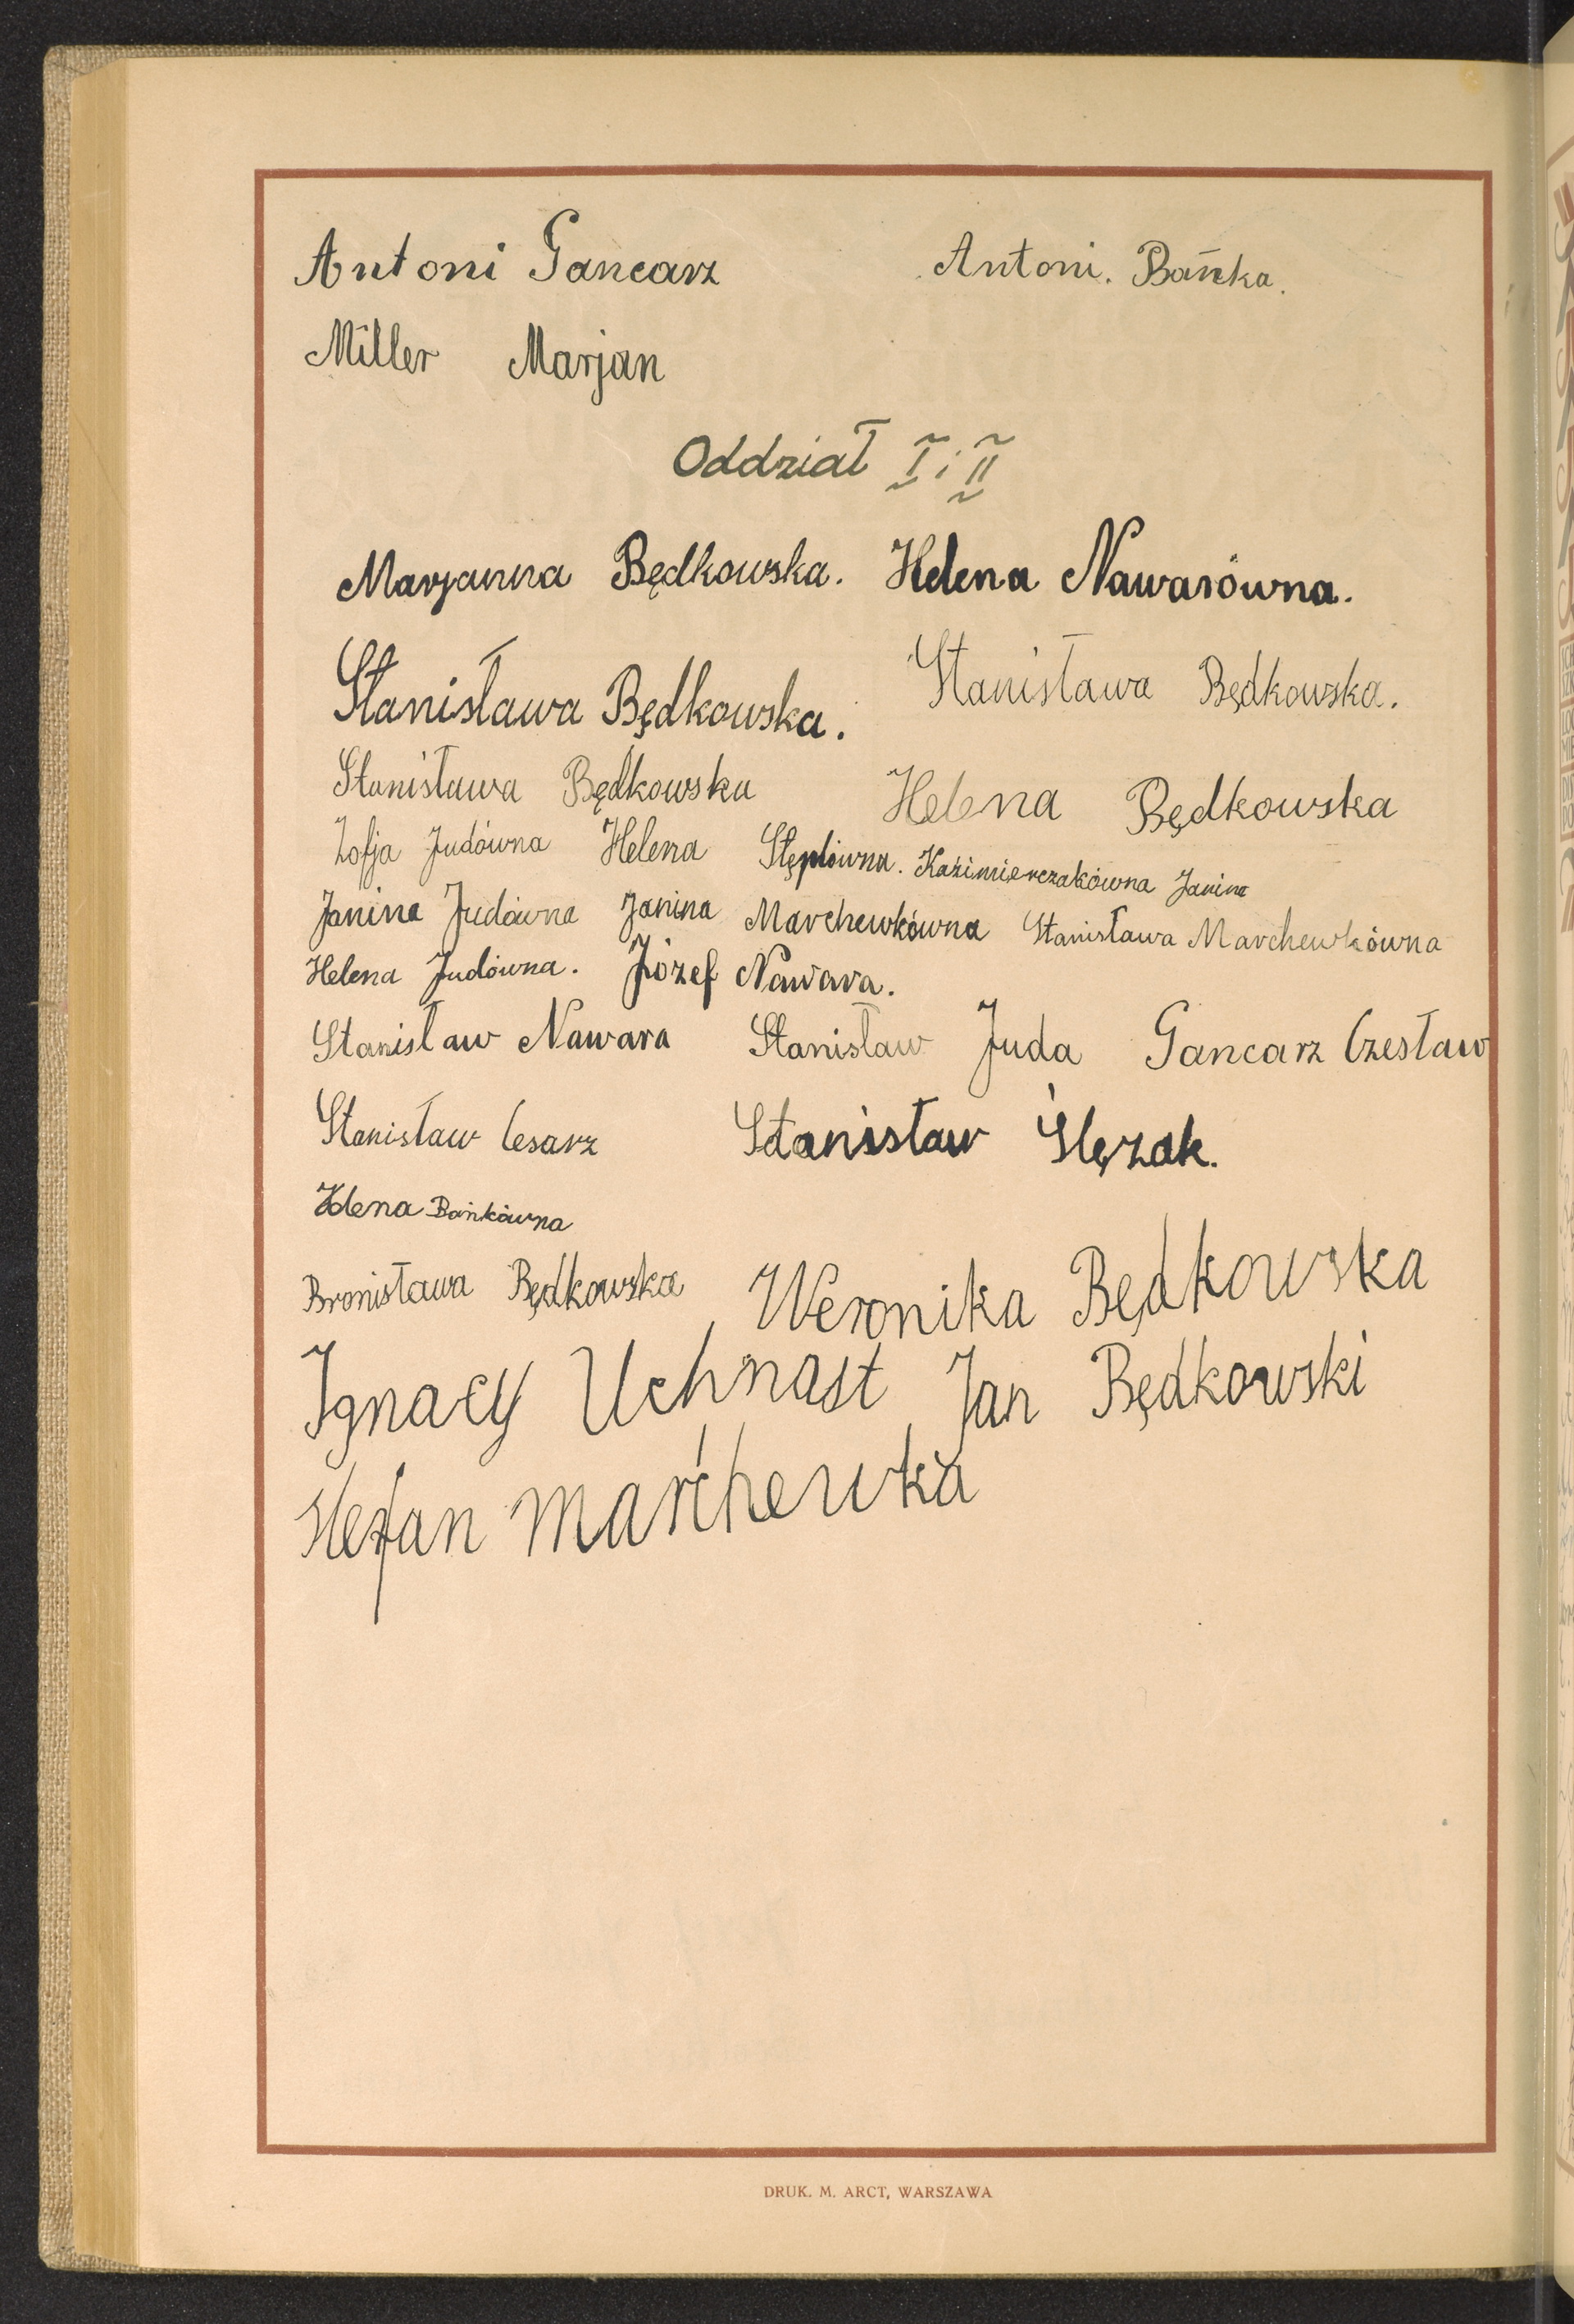 Antoni Gancarz Antoni. Bańka.
Miller Marjan
Oddział I i II
Marjanna Będkowska. Helena Nawarówna.
Stanisława Będkowska. Stanisława Będkowska.
Stanisława Będkowska Helena Będkowska
Zofja Judówna Helena Stęplówna. Kaźimierczakówna Janina
Janina Judówna Janina Marchewkówna Stanisława Marchewkówna
Helena Judówna. Józef Nawara.
Stanisław Nawara Stanisław Juda Gancarz Czesław
Stanisław Cesarz Stanisław Ślęzak.
Helena Bańkówna
Bronisława Będkowska Weronika Będkowska
Ignacy Uchnast Jan Będkowski
Stefan Marchewka
DRUK. M. ARCT, WARSZAWA